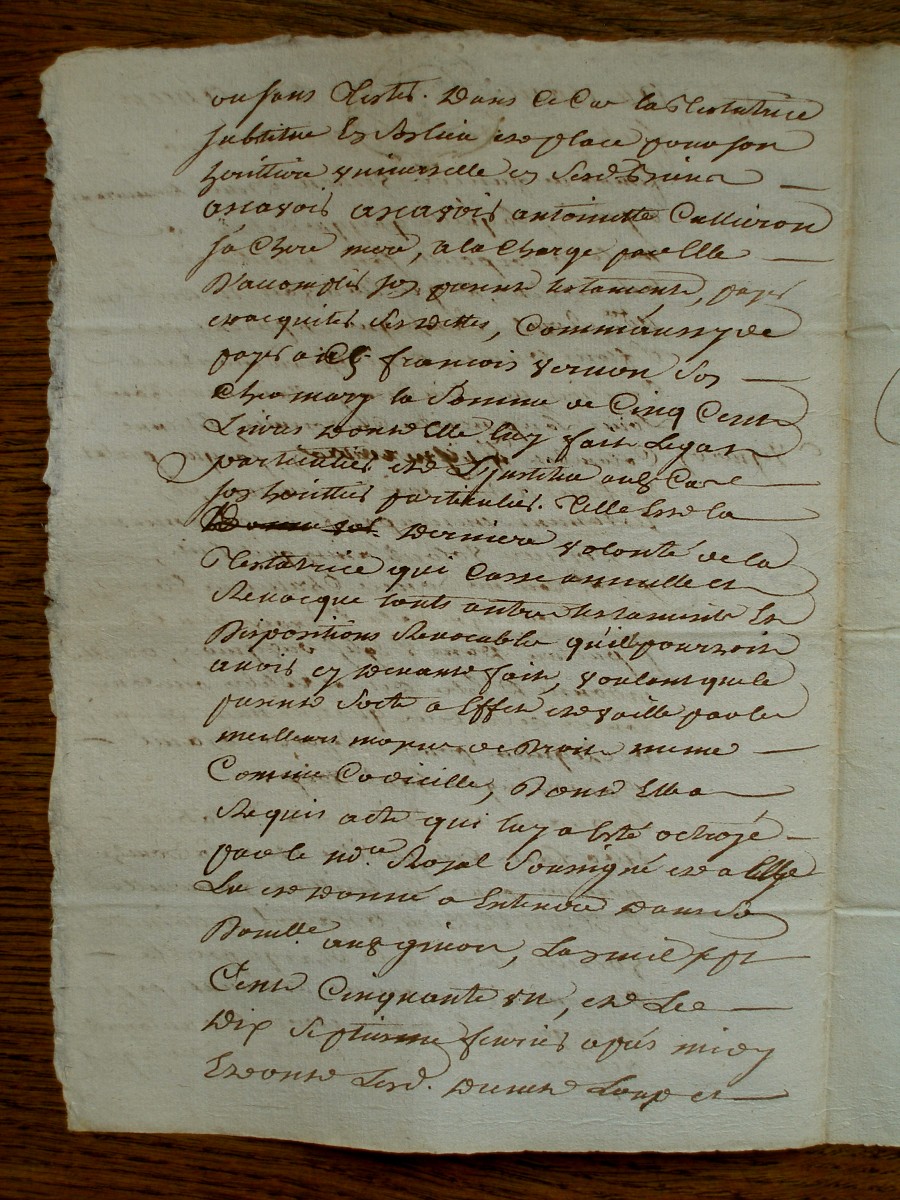 ou sans Tester. Dans Ce Cas la Testatrice
substitue En son lieu et place pour son
heritiere universelle
a scavoir a scavoir antoinette Cullieron
sa Chere mere, a la Charge par Elle
D'accomplir son present testament, payer
et acquiter ses dettes, Comm'aussy de
payer a françois vernon son
Cher mary la Somme de Cinq Cent
Livres dont Elle luy fait Legat
particulier et L'institue aud Cas
son heritier particulier. Telle Est la
derniere volonté de la
Testatrice qui Casse annulle et
Revocque touts autres testaments Et
Dispositions Revocable qu'ill pourroit
avoir cy devant fait, voulant que le
present sorte a Effet et vaille par la
meilleure maniere de Droit mesme
Comme Codicille, Dont Elle a
Requis acte qui luy a Esté octroyé
par le no.re Royal Soussigné et a Elle
Lu et Donné a Entendre dans le
Domille L'an mil sept
Cent Cinquante un, et Le
dix septieme fevrier apres midy
Led. et